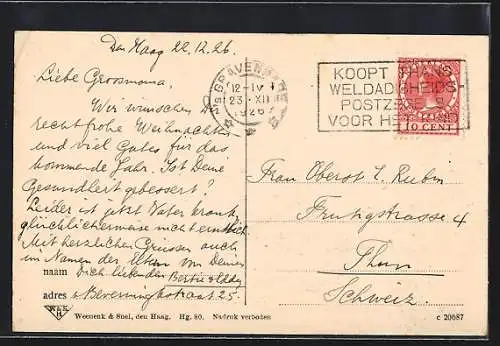 Den Haag 22.12.26.
Liebe Grossmama,
Wir wünschen Dir
recht frohe Weihnachten
und viel Gutes für das
kommende Jahr. Ist Deine
Gesundheit gebessert?
Leider ist jetzt Vater krank,
glücklicherweise nicht ernstlich.
Mit herzlichen Grüssen auch
im Namen der Eltern von Deinen
naam Dich liebenden Bertie & Addy
adres Beverningkstraat 25.
's GRAVENHAGE
12-IV
23.XII
1926
KOOPT THANS
WELDADIGHEIDS-
POSTZEGELS
VOOR HET KIND
10 CENT
Frau Oberst L. Rubin
Frutigstrasse 4
Thun
Schweiz.
W&S
H
Weenenk & Snel, den Haag. Hg. 80. Nadruk verboden
c 20687